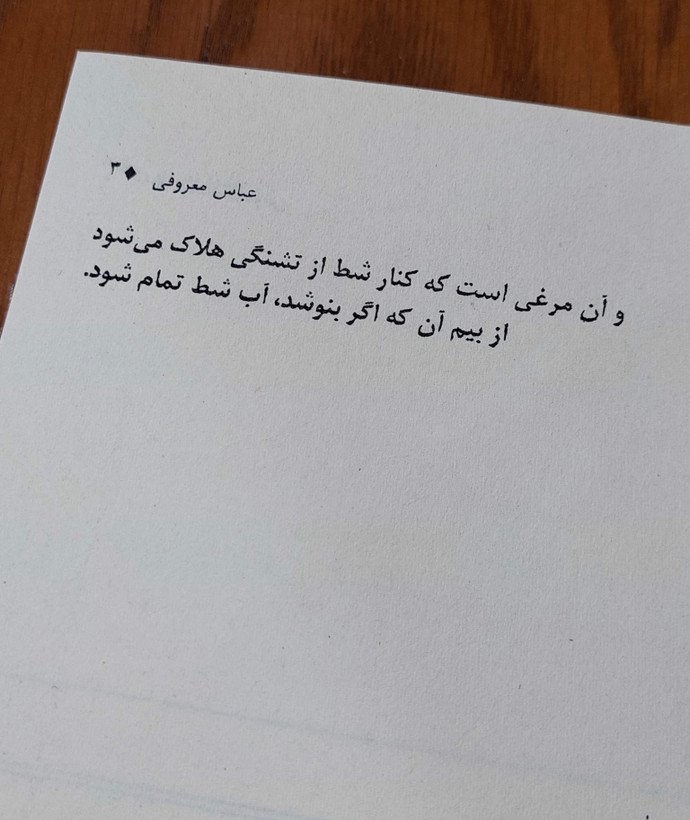 عباس معروفی ♦ ۳
و آن مرغی است که کنار شط از تشنگی هلاک می‌شود
از بیم آن که اگر بنوشد، آب شط تمام شود.